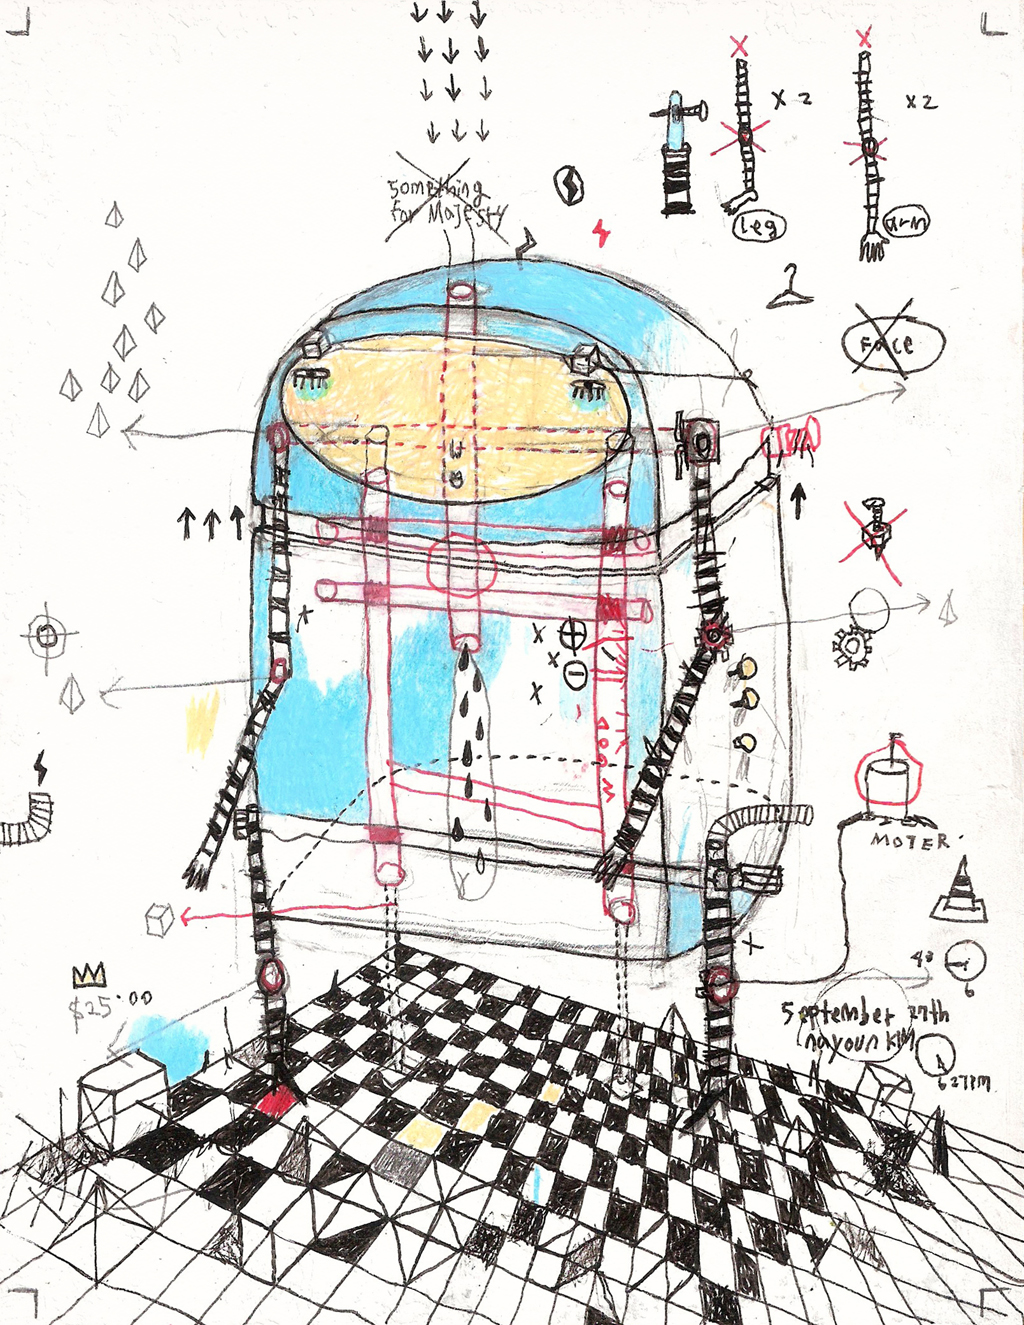 something
for Majesty
x 2
x 2
leg
arm
FaCe
MOTER.
$25.00
September 27th
nayoun KIM
6
6:27PM